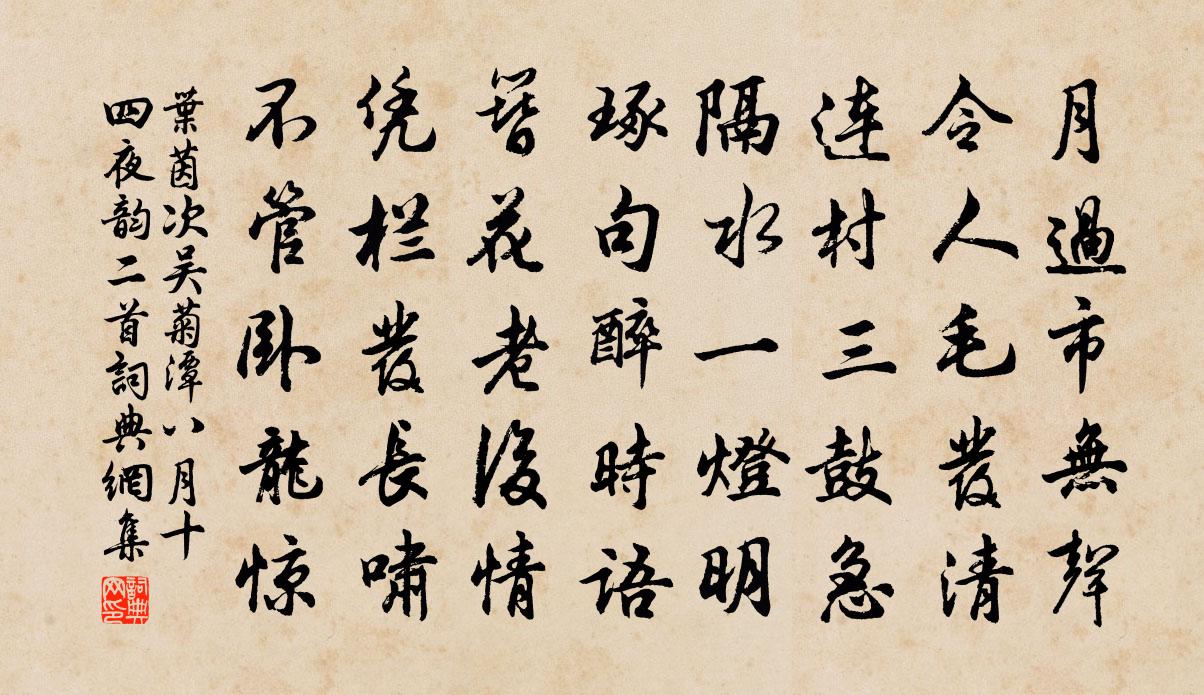 月過市無聲
令人毛發清
連村三鼓急
隔水一燈明
琢句醉時語
簪花老後情
凭栏發長嘯
不管卧龍惊
葉茵次吴菊潭八月十
四夜韵二首詞典網集
詞典网印